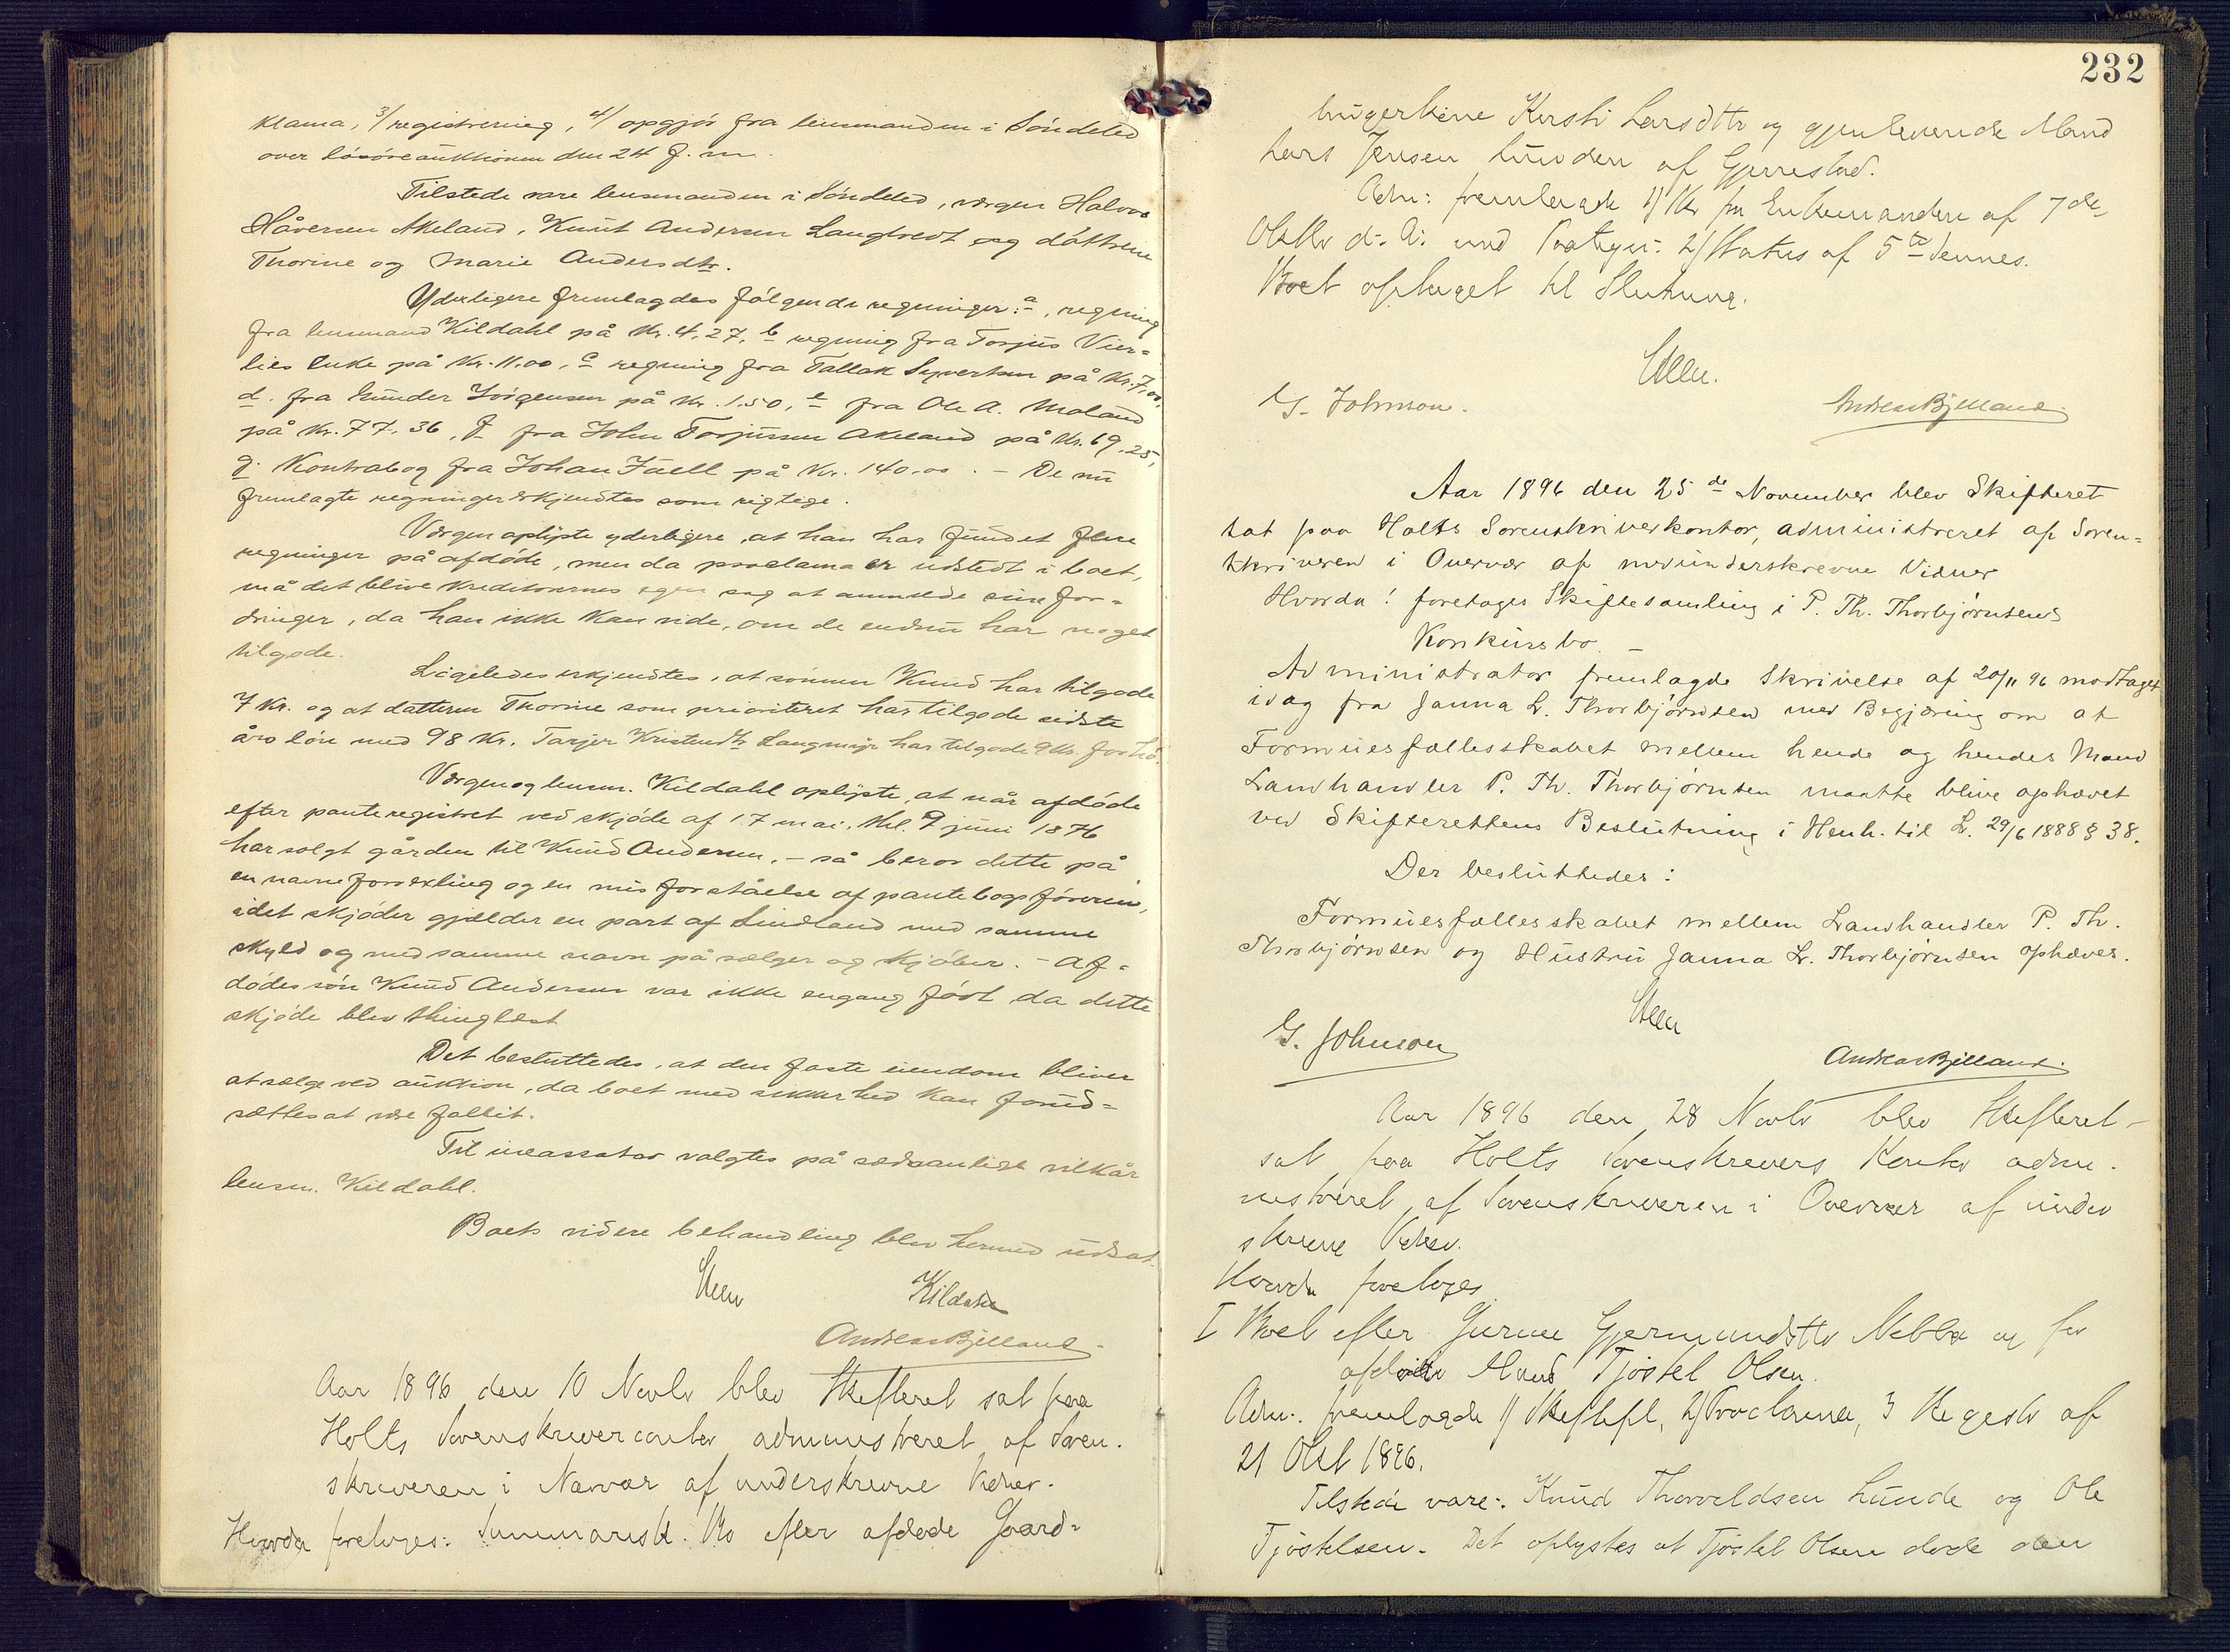 klama, 3/ registrering, 4/ opgjör fra lensmanden i Söndeled
over lösöreauktionen den 24 f. m.
Tilstede vare lensmanden i Söndeled, vergen Halvor
Håversen Akeland, Knut Andersen Langtvedt og döttrene
Thorine og Marie Andersdtr.
Yderligere fremlagdes fölgende regninger: a, regning
fra lensmand Kildahl på Kr. 4,27, b regning fra Torjus Vier-
lies enke på Kr. 11,00, c regning fra Tallak Syvertsen på Kr. 7,00,
d. fra Gunder Jörgensen på Kr. 1,50, e fra Ole A. Moland
på Kr. 77,36, f fra John Torjussen Akeland på Kr. 69,25,
g. Kontrabog fra Johan Juell på Kr. 140,00. - De nu
fremlagte regninger erkjendtes som rigtige.
Vergen oplyste yderligere, at han har fundet flere
regninger på afdöde, men da proclama er udstedt i boet,
må det blive kreditorernes egen sag at anmelde sine for-
dringer, da han ikke kan vide, om de endnu har noget
tilgode.
Ligeledes erkjendtes, at sönnen Knud har tilgode
7 Kr. og at datteren Thorine som prioriteret har tilgode sidste
års lön med 98 Kr. Tarjer Kristendtr Langmyr har tilgode 9 Kr. for hö.
Vergen og lensm. Kildahl oplyste, at når afdöde
efter panteregistret ved skjöde af 17 mai, thl. 9 juni 1876
har solgt gården til Knud Andersen, - så beror dette på
en navneforvexling og en misforståelse af pantebogsföreren,
idet skjödet gjælder en part af Lindland med samme
skyld og med samme navn på sælger og kjöber. - Af-
dödes sön Knud Andersen var ikke engang föd da dette
skjöde blev thinglæst
Det besluttedes, at den faste eiendom bliver
at sælge ved auktion, da boet med sikkerhed kan forud-
sættes at være fallit.
Til incassator valgtes på sedvanlige vilkår
lensm. Kildahl.
Boets videre behandling blev hermed udsat
Kildahl
Andreas Bjelland.
Aar 1896 den 10 Novbr blev Skifteret sat paa
Holts Sorenskrivercontor administreret af Soren-
skriveren i Nærvær af underskrevne Vidner.
Hvorda foretoges: Summarisk. Bo efter afdøde Gaard-
232
brugerkone Kirsti Larsdtr og gjenlevende Mand
Lars Jensen Lunden af Gjerrestad.
Adm: fremlagde 1) Skr fra Enkemanden af 7de
Oktbr d. A. med 2) Status af 5te dennes.
Boet optaget til Slutning.
G. Johnson.
Andreas Bjelland
Aar 1896 den 25de November blev Skifteret
sat paa Holts Sorenskriverkontor, administreret af Soren-
skriveren i Overvær af medunderskrevne Vidner
Hvorda! foretoges Skiftesamling i P. Th. Thorbjørnsens
Konkursbo. -
Administrator fremlagde Skrivelse af 20/11 96 modtaget
idag fra Janna L. Thorbjørnsen med Begjæring om at
Formuesfællesskabet mellem hende og hendes Mand
Landhandler P. Th. Thorbjørnsen maatte blive ophævet
ved Skifterettens Beslutning i Henh. til L. 29/6 1888 § 38.
Der besluttedes:
Formuesfællesskabet mellem Landhandler P. Th.
Thorbjørnsen og Hustru Janna L. Thorbjørnsen ophæves.
G. Johnson
Andreas Bjelland.
Aar 1896 den 28 Novbr blev Skifteret
sat paa Holts Sorenskrivers Kontor admi-
nistreret af Sorenskriveren i Overvær af under
skrevne Vidner.
Hvorda foretoges
I Boet efter Gurine Gjermundsdtr Nebba og før
afdøde Mand Tjøstel Olsen.
Adm. fremlagde 1/ Skiftefl, 2/ Proclama, 3 Registr af
21 Okt 1896.
Tilstede vare: Knud Thorvaldsen Lunde og Ole
Tjøstelsen. Det oplystes at Tjøstel Olsen døde den